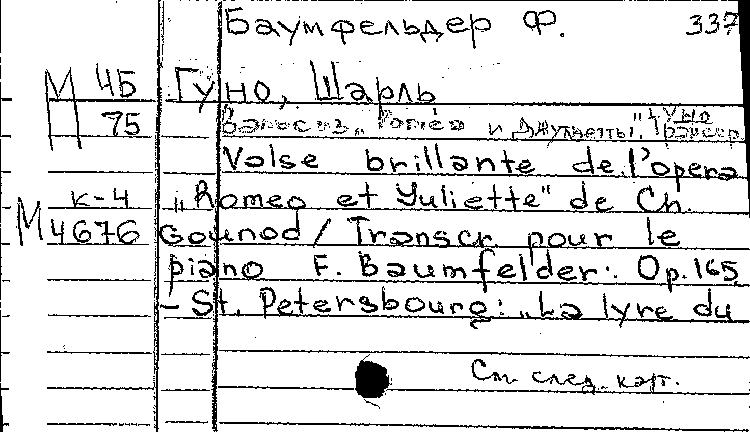 Баумфельдер Ф. 337
М 45 Гуно, Шарль
75 Вальс из „Ромео и Джульетты", Гуно Трансер
Valse brillante de l'opera
к-4 „Romeo et Yuliette" de Ch.
М 4676 Gounod / Transcr. pour le
piano F. Baumfelder. Op. 165
– St. Petersbourg: „La lyre du
См. след. карт.